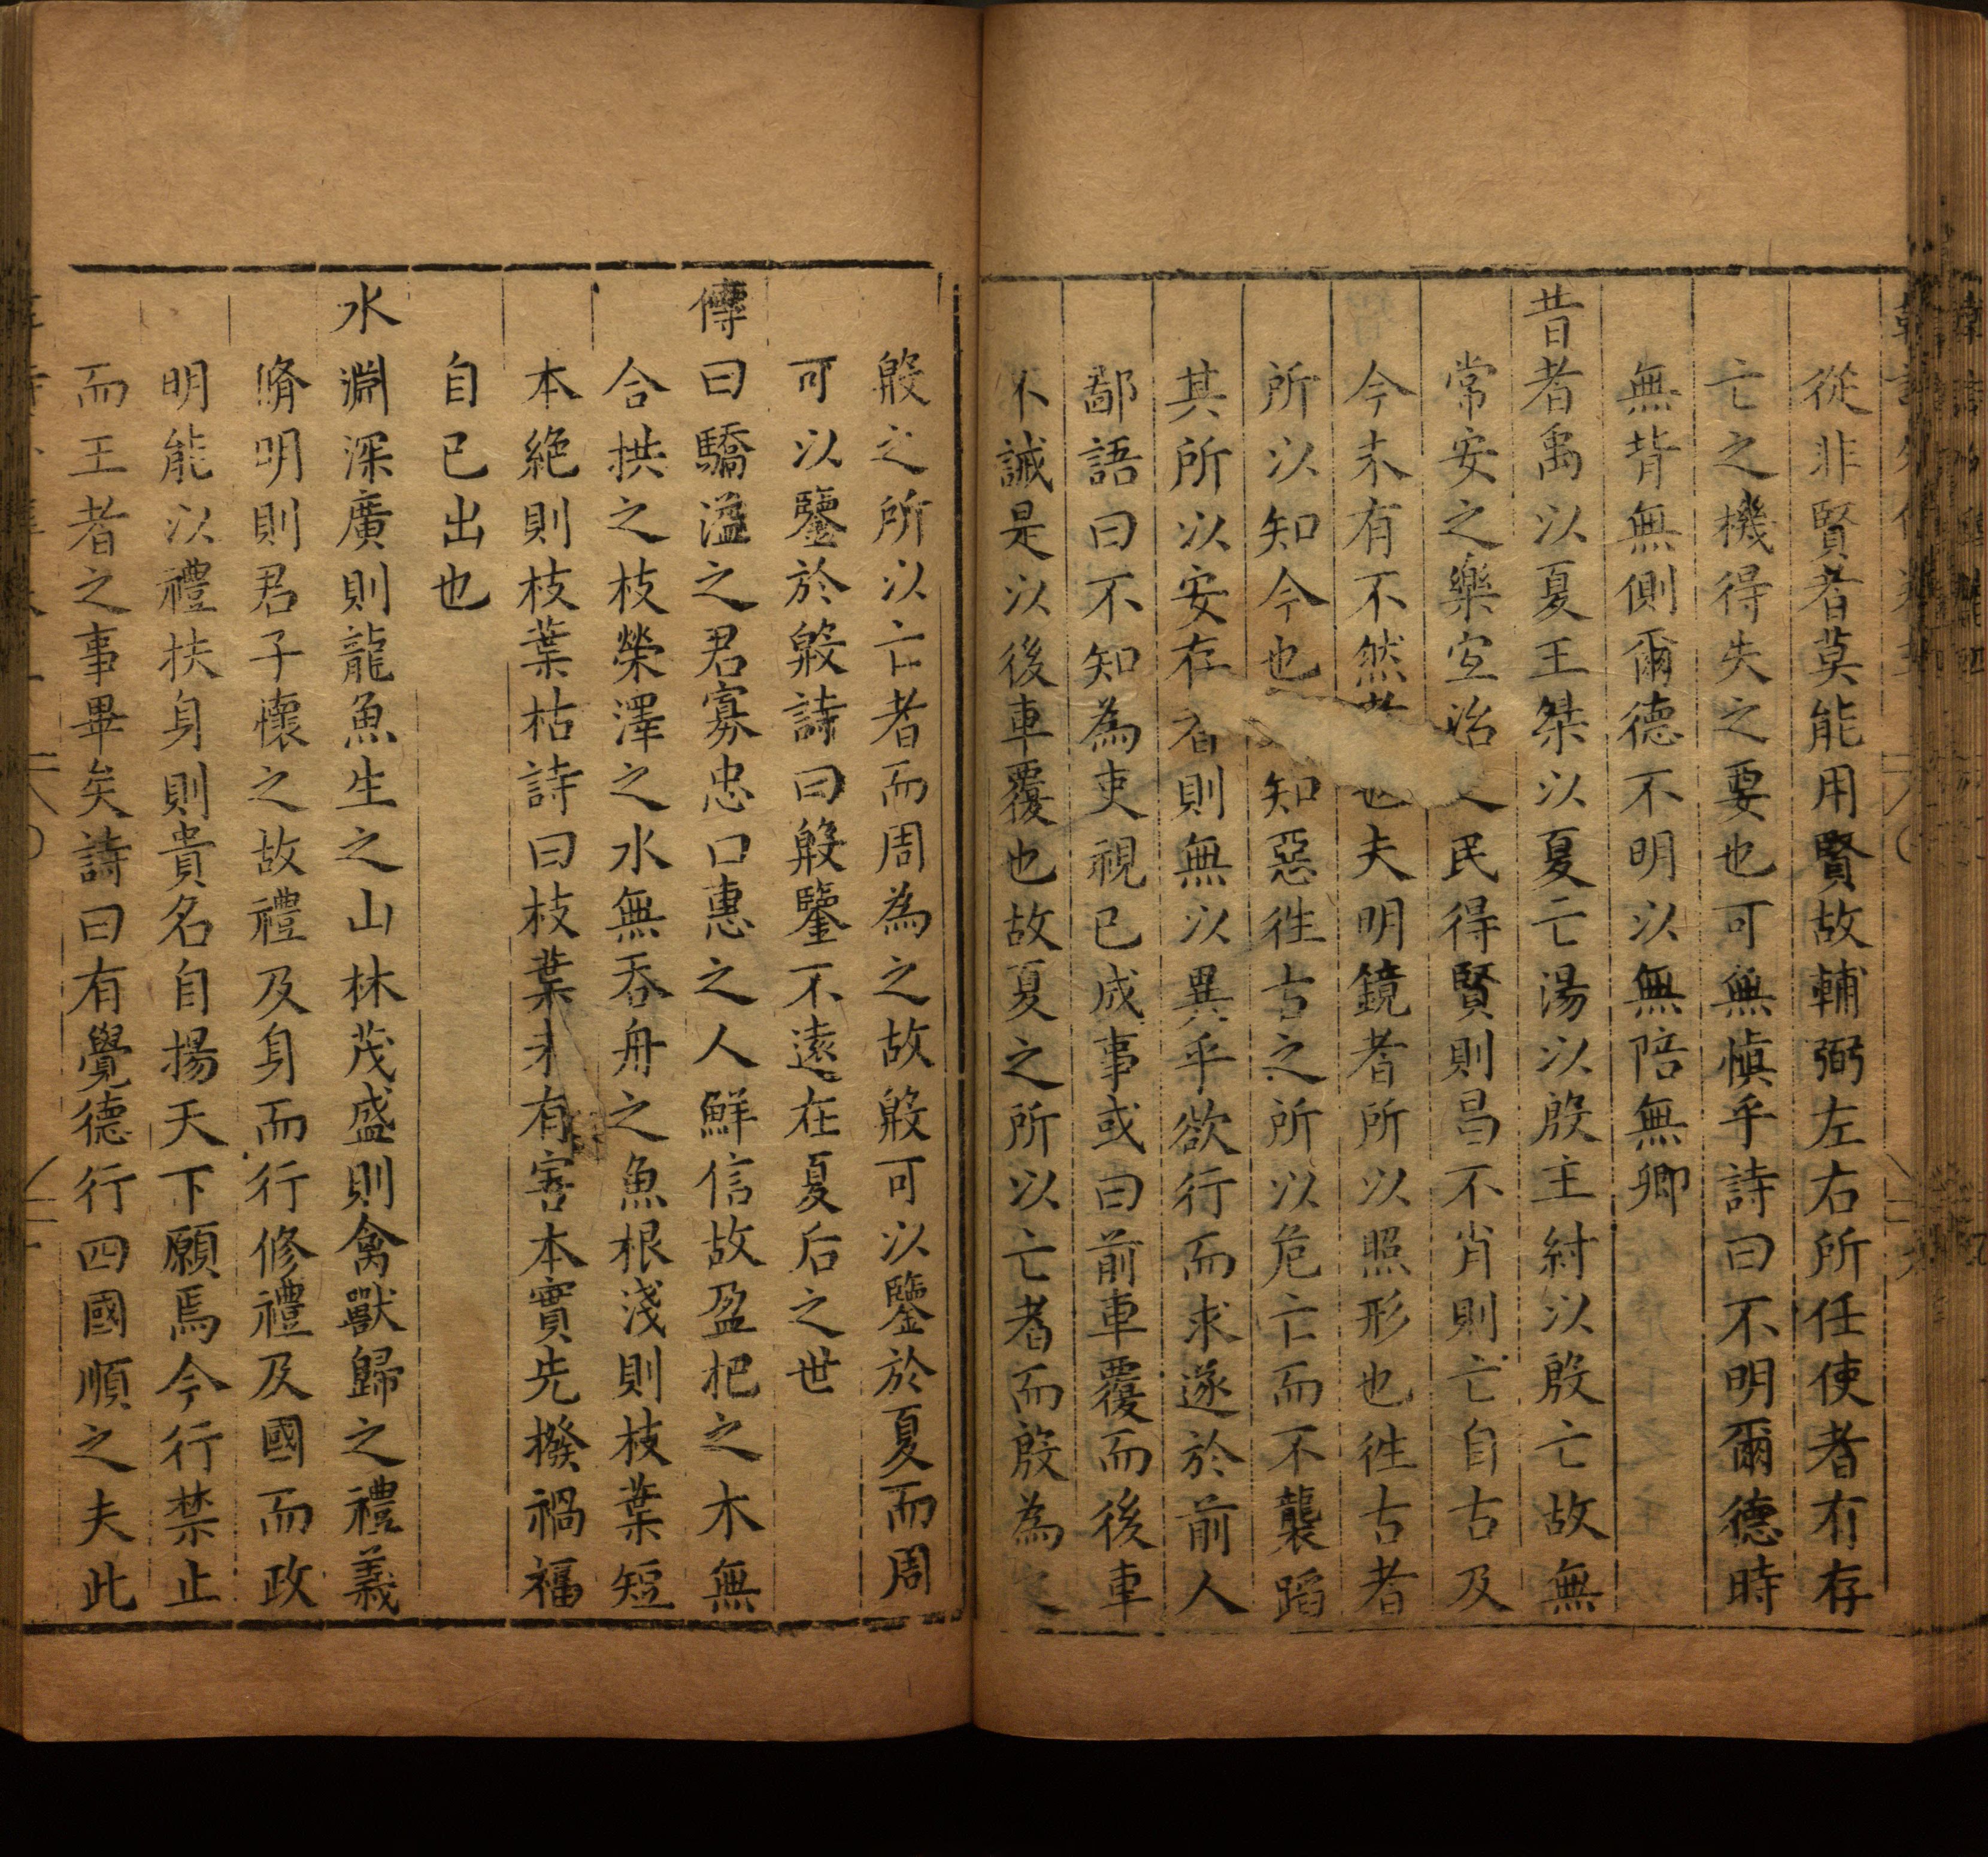 從非賢者莫能用賢故輔弼左右所任使者有存
亡之機得失之要也可無慎乎詩曰不明爾德時
無背無側爾德不明以無陪無卿
昔者禹以夏王桀以夏亡湯以殷主紂以殷亡故無
常安之樂宜治民得賢則昌不肖則亡自古及
今未有不然也夫明鏡者所以照形也往古者
所以知今也知惡往古之所以危亡而不襲蹈
其所以安存者則無以異乎欲行而求遂於前人
鄙語曰不知為吏視已成事或曰前車覆而後車
不誡是以後車覆也故夏之所以亡者而殷為之
殷之所以亡者而周為之故殷可以鑒於夏而周
可以鑒於殷詩曰殷鑒不遠在夏后之世
傳曰驕溢之君寡忠口惠之人鮮信故盈把之木無
合拱之枝榮澤之水無吞舟之魚根淺則枝葉短
本絕則枝葉枯詩曰枝葉未有害本實先撥禍福
自已出也
水淵深廣則龍魚生之山林茂盛則禽獸歸之禮義
脩明則君子懷之故禮及身而行修禮及國而政
明能以禮扶身則貴名自揚天下願焉令行禁止
而王者之事畢矣詩曰有覺德行四國順之夫此